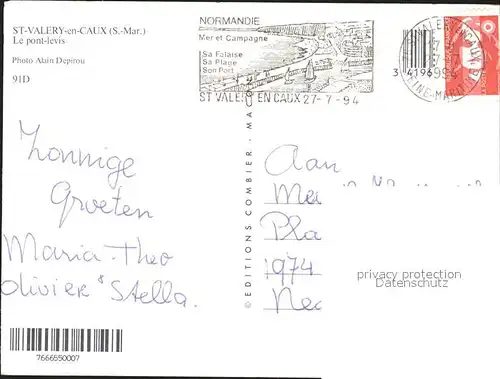 ST-VALERY-en-CAUX (S.-Mar.)
Le pont-levis
Photo Alain Depirou
91D
NORMANDIE
Mer et Campagne
Sa Falaise
Sa Plage
Son Port
ST VALERY EN CAUX 27-7-94
3 4196
Zonnige
Groeten
Maria-Theo
Olivier & Stella.
© EDITIONS COMBIER - MA
Aan
Me
Pla
1974
Ne
privacy protection
Datenschutz
7666550007